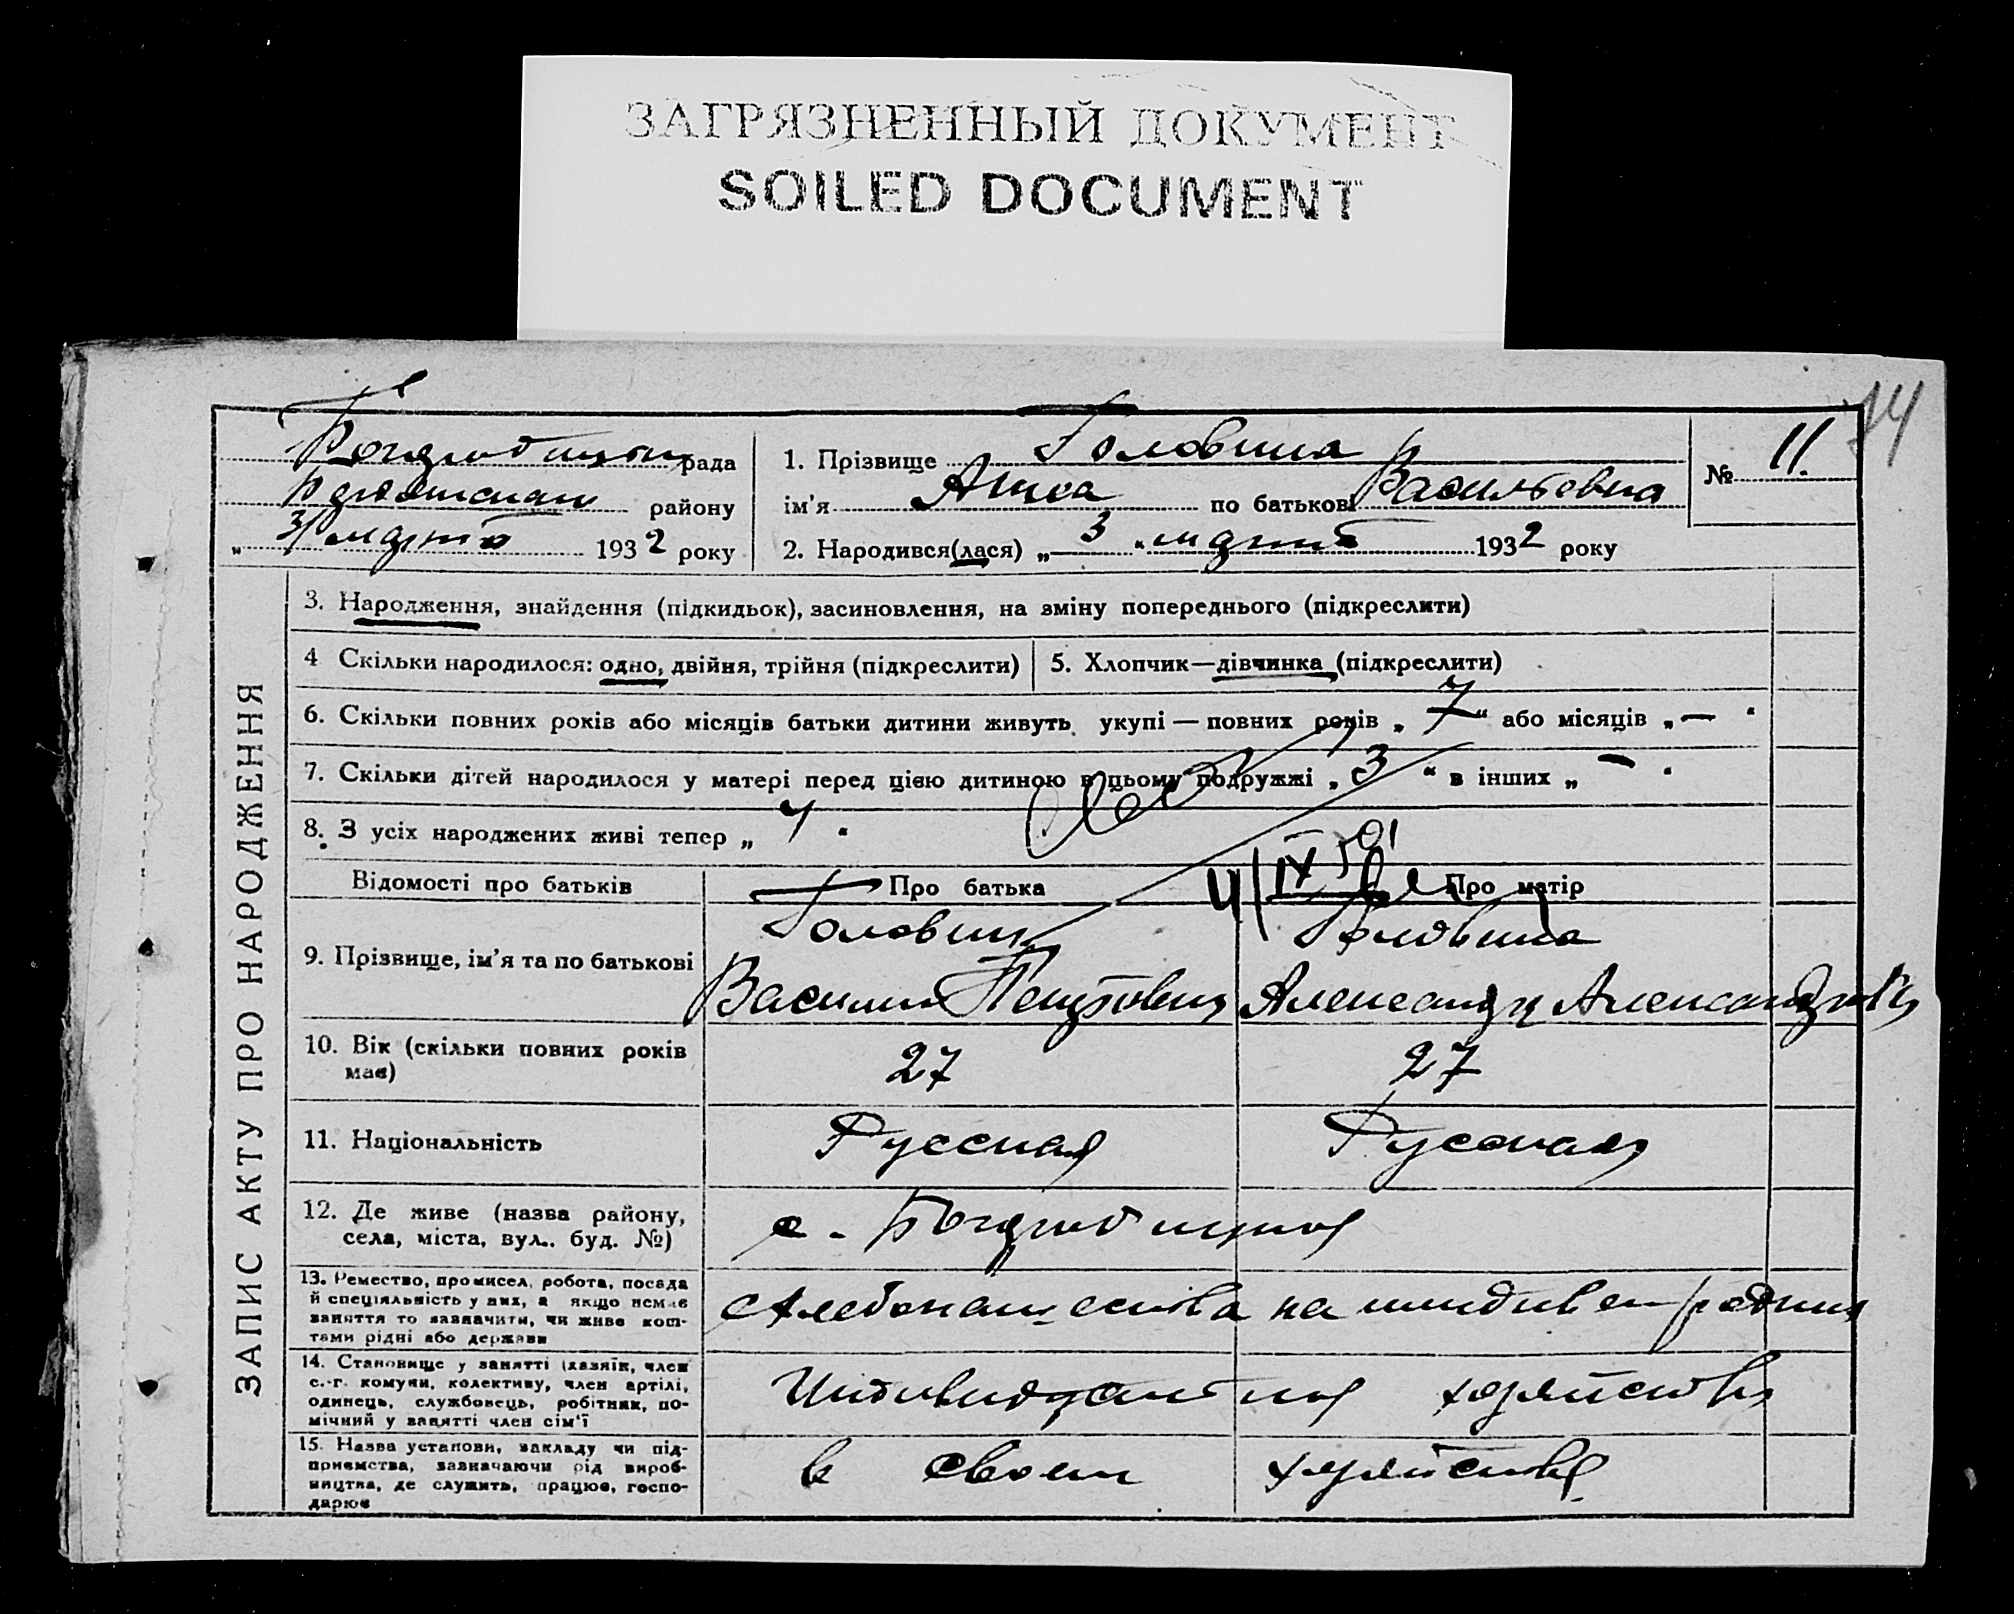 ЗАГРЯЗНЕННЫЙ ДОКУМЕНТ
SOILED DOCUMENT
14
рада
району
„ 3 марта 1932 року
1. Прізвище Головина
ім'я Анна по батькові Васильевна
2. Народився(лася) „ 3 " марта 1932 року
№ 11.
ЗАПИС АКТУ ПРО НАРОДЖЕННЯ
3. Народження, знайдення (підкидьок), засиновлення, на зміну попереднього (підкреслити)
4 Скільки народилося: одно, двійня, трійня (підкреслити)
5. Хлопчик—дівчинка (підкреслити)
6. Скільки повних років або місяців батьки дитини живуть укупі — повних років „ 7 " або місяців „ — "
7. Скільки дітей народилося у матері перед цією дитиною в цьому подружжі „ 3 " в інших „ — "
8. З усіх народжених живі тепер „ 4 "
4/IX
Відомості про батьків Про батька Про матір
9. Прізвище, ім'я та по батькові
Головин
Василий Петрович
Головина
Александра Александровна
10. Вік (скільки повних років має)
27
27
11. Національність
Русская
Русская
12. Де живе (назва району,
села, міста, вул.. буд. №)
с.
13. Ремество, промисел, робота, посада
й спеціяльність у них, а якщо немає
заняття то зазначити, чи живе кош-
тами рідні або держави
хлебопашества на
14. Становище у занятті (хазяїн, член
с.-г. комуни, колективу, член артілі,
одинець, службовець, робітник, по-
мічний у занятті член сім'ї
хозяйства
15. Назва установи, закладу чи під-
приємства, зазначаючи рід вироб-
ництва, де служить, працює, госпо-
дарює
в своем хозяйстве